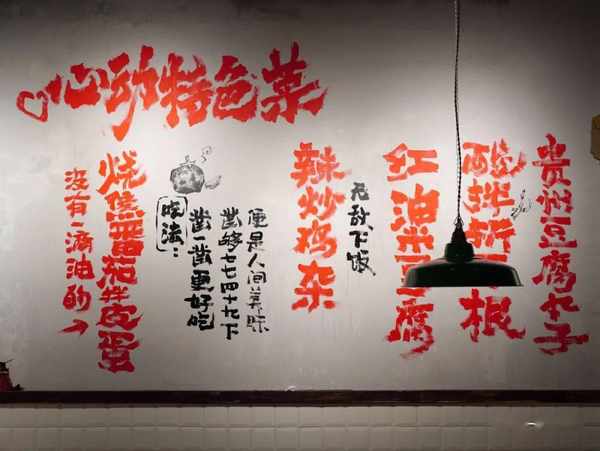 心动特色菜
没有一滴油的
烧焦番茄拌皮蛋
吃法:
凿一凿更好吃
凿够七七四十九下
便是人间美味
辣炒鸡杂
无敌下饭
红油米豆腐
酸拌折根
贵州豆腐丸子